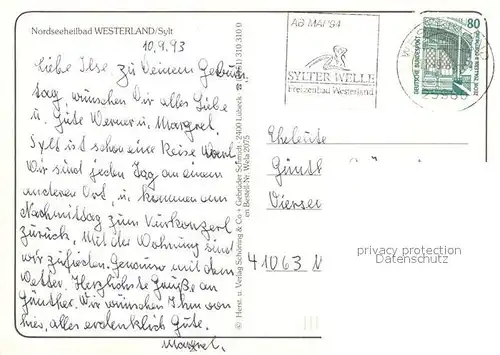 Nordseeheilbad WESTERLAND/Sylt
10.9.93
Liebe Ilse, zu Deinem Geburts
tag, wünschen Dir alles Liebe
u. Gute Werner u. Margret.
Sylt ist schon eine Reise wert.
Wir sind jeden Tag an einem
anderen Ort, u. kommen am
Nachmittag zum Kurkonzert
zurück. Mit der Wohnung sind
wir zufrieden. Genauso mit dem
Wetter. Herzlichste Grüße an
Günther. Wir wünschen Ihm von
hier, alles erdenklich Gute.
Margret.
© Herst. u. Verlag Schöning & Co + Gebrüder Schmidt · 2400 Lübeck ☎ (0451) 310 310 0
en Bestell-Nr. Wela 20075
AB MAI '94
SYLTER WELLE
Freizeitbad Westerland
80
DEUTSCHE BUNDESPOST
Eheleute
Günth
Viersen
41063
privacy protection
Datenschutz